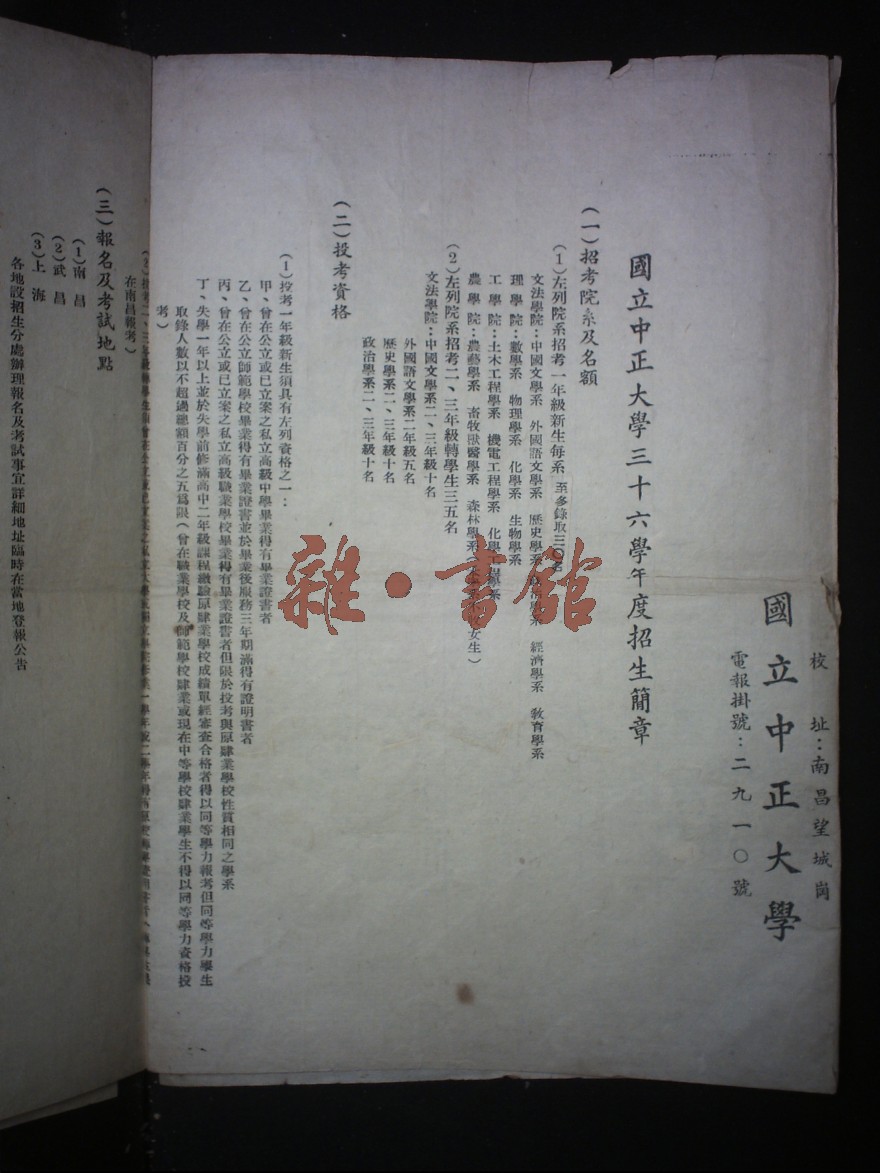 校址：南昌望城崗
國立中正大學
電報掛號：二九一〇號
國立中正大學三十六學年度招生簡章
(一)招考院系及名額
(1)左列院系招考一年級新生每系至多錄取三〇名
文法學院：中國文學系 外國語文學系 歷史學系 政治學系 經濟學系 教育學系
理學院：數學系 物理學系 化學系 生物學系
工學院：土木工程學系 機電工程學系 化學工程學系
農學院：農藝學系 畜牧獸醫學系 森林學系 女生)
(2)左列院系招考二、三年級轉學生三五名
文法學院：中國文學系二、三年級十名
外國語文學系二年級五名
歷史學系二、三年級十名
政治學系二、三年級十名
(二)投考資格
(1)投考一年級新生須具有左列資格之一：
甲、曾在公立或已立案之私立高級中學畢業得有畢業證書者
乙、曾在公立師範學校畢業得有畢業證書並於畢業後服務三年期滿得有證明書者
丙、曾在公立或已立案之私立高級職業學校畢業得有畢業證書者但限於投考與原肄業學校性質相同之學系
丁、失學一年以上並於失學前修滿高中二年級課程繳驗原肄業學校成績單經審查合格者得以同等學力報考但同等學力學生
取錄人數以不超過總額百分之五爲限(曾在職業學校及師範學校肄業或現在中等學校肄業學生不得以同等學力資格投
考)
(2)投考二、三年級轉學生須曾在
在南昌報考)
(三)報名及考試地點
(1)南昌
(2)武昌
(3)上海
各地設招生分處辦理報名及考試事宜詳細地址臨時在當地登報公告
雜·書館